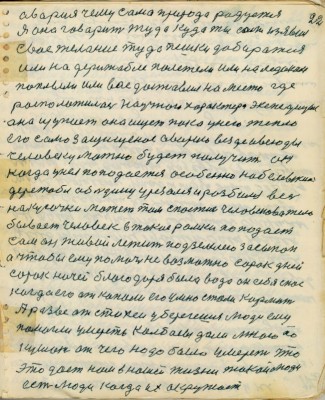 22
авария чему сама природа радуется
Я она говарит туда куда ты сам изявил
Свое желание туда пешки добиратся
или на держабле полетели или на ледоколи
поплили или вас доставили на место где
росположилас научного характера экспедиция
она изучает она ищет пока у него тепло
его само защищеное аварию везде и всюды
человеку можно будет получить он
когда уже поподается особено на
держабли об изиму урезолся и розбился вес
на кусочки может там спастис человек
бывает человек в такие ромки поподает
сам он живий лежит под землею засипон
а чтобы ему помочь не возможно сорок дней
сорок ночей благодоря было вода он себя спас
когда его откопали его умно стали кормит
А разве от стихеи убереgешся люди ему
помогли умереть колбаси дали много
кушат от чего надо было умереть это
Это дает нам в нашей жизни такой
ест люди когда их окружает